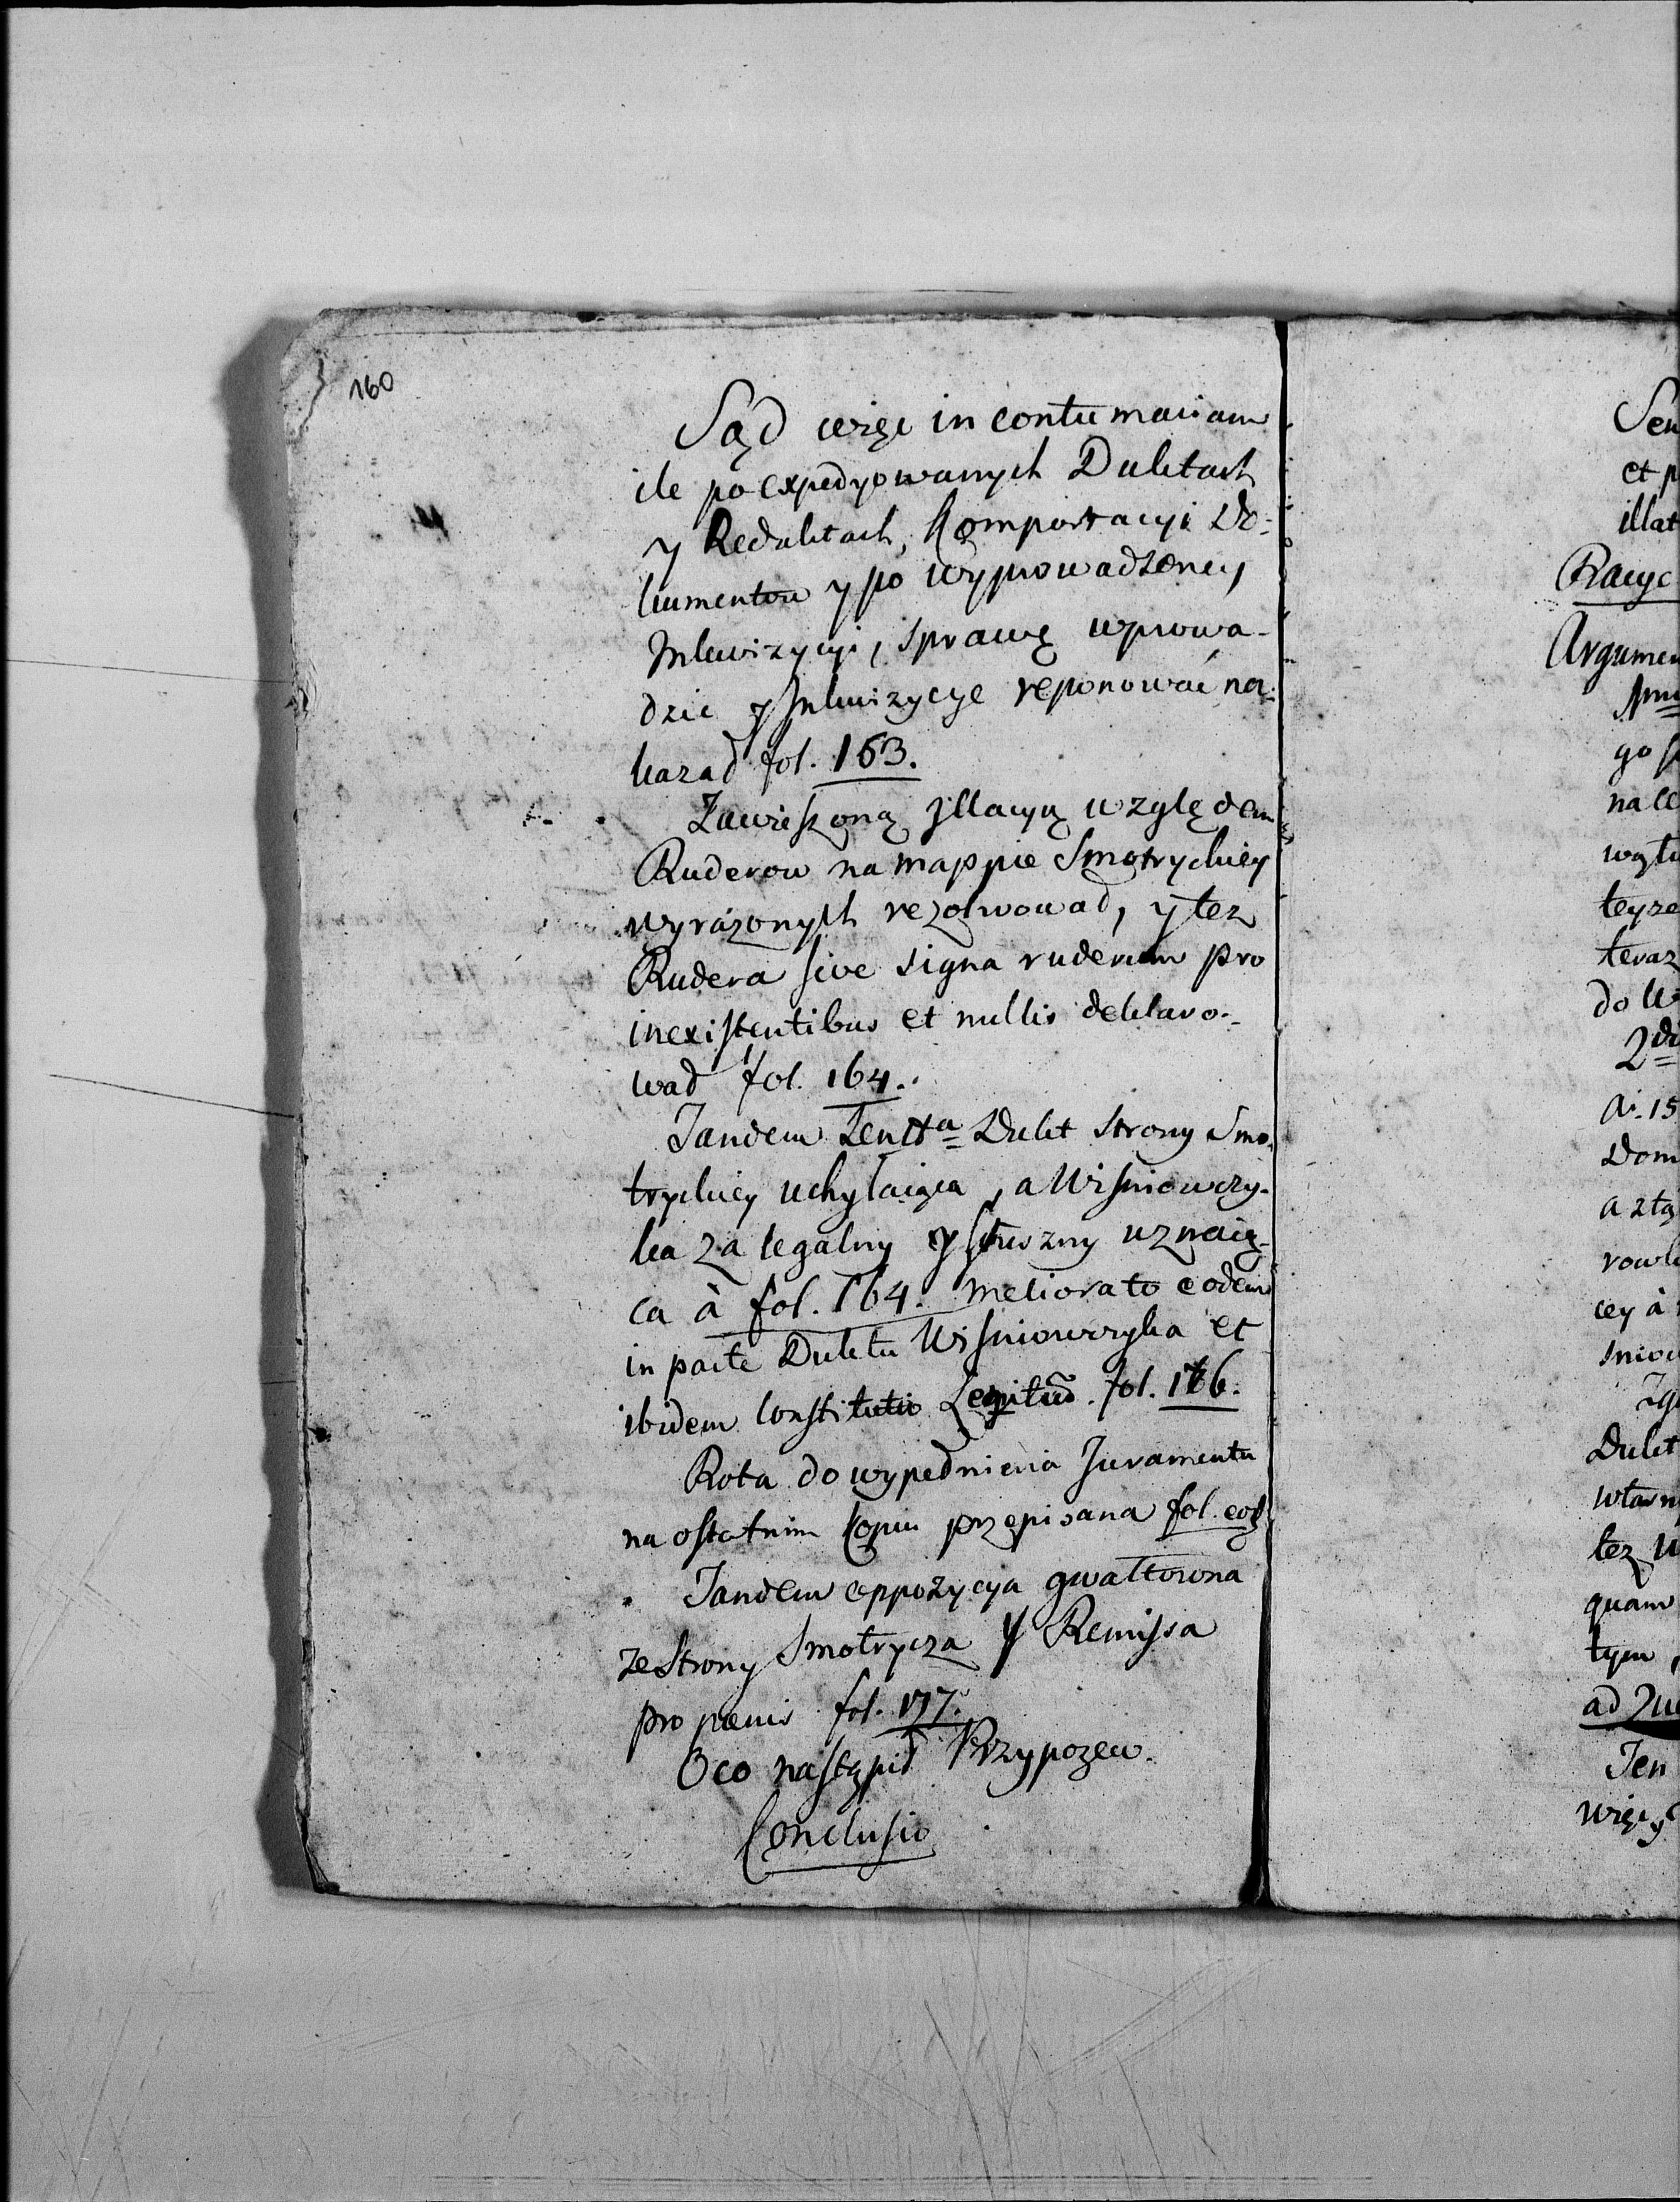 160
Sąd więc in contumaciam
ile po expedyowanych Duktach
y Reduktach, Komportacyi Do-
kumentow y po wyprowadzoney
Inkwizycyi, sprawę wprowa-
dzic y Inkwizycye reponować na-
kazał fol. 163.
Zawieszoną Jllacyą względem
Ruderow na mappie Smotryckiey
wyrażonych rezolwował, y tez
Rudera sive signa ruderum pro
inexistentibus et nullis deklaro-
wał fol. 164.
Tandem Sentta Dukt strony Smo-
tryckiey uchylaiąca, a Wisniowczy-
ka za legalny y słuszny uznaią-
ca à fol. 164. meliorato eodem
in parte Duktu Wisniowczyka et
ibidem constitutis fol. 176.
Rota do wypełnienia Juramentu
na ostatnim kopcu przepisana fol. eod
Tandem oppozycya gwałtowna
ze Strony Smotrycza y Remissa
pro pœnis fol. 177.
O co nastąpił Przypozew.
Conclusio
Sen
et p
illat
Racyc
Argumen
go
na
teyze
teraz
do
2do
A. 15
Dom
a
cey à
sniow
Dukt
własn
tez
quam
tym,
ad
Ten
więc